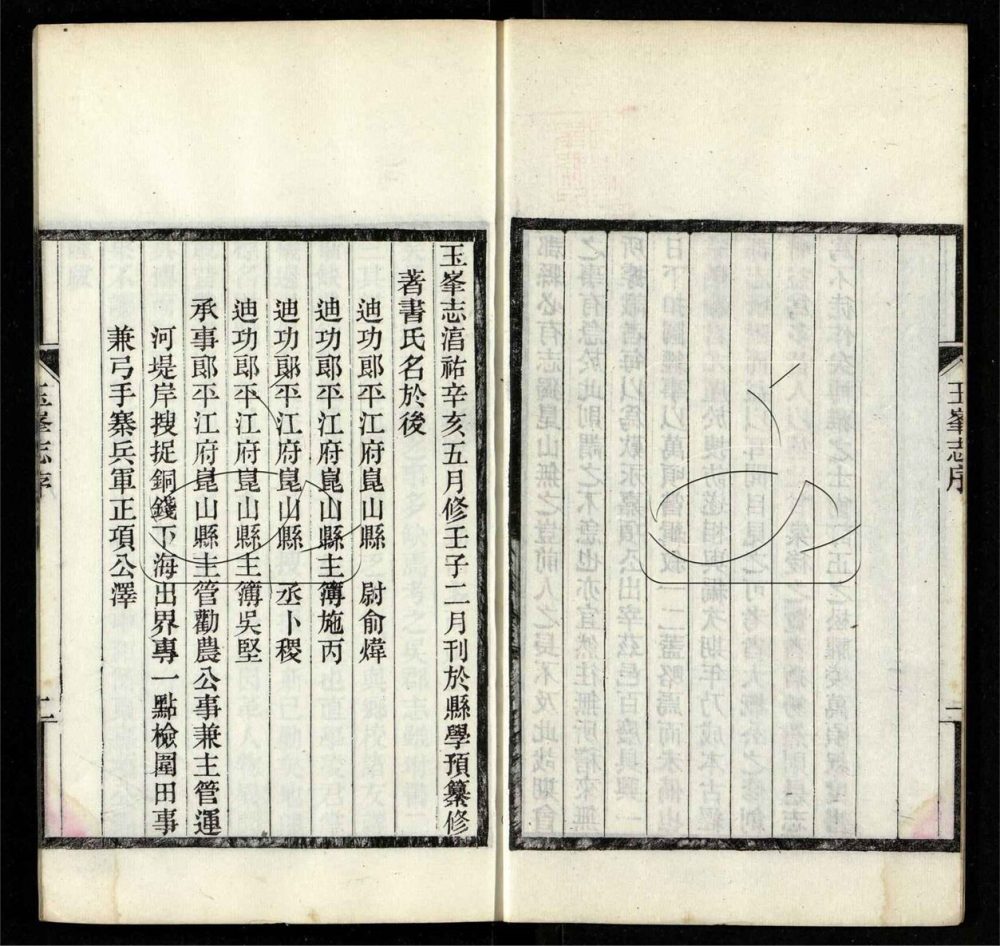 玉峯志序
二
玉峯志湻祐辛亥五月修壬子二月刊於縣學預纂修
著書氏名於後
迪功郎平江府崑山縣　尉俞煒
迪功郎平江府崑山縣主簿施丙
迪功郎平江府崑山縣　丞卜稷
迪功郎平江府崑山縣主簿吳堅
承事郎平江府崑山縣主管勸農公事兼主管運
河堤岸搜捉銅錢下海出界專一點檢圍田事
兼弓手寨兵軍正項公澤
玉峯志序
二